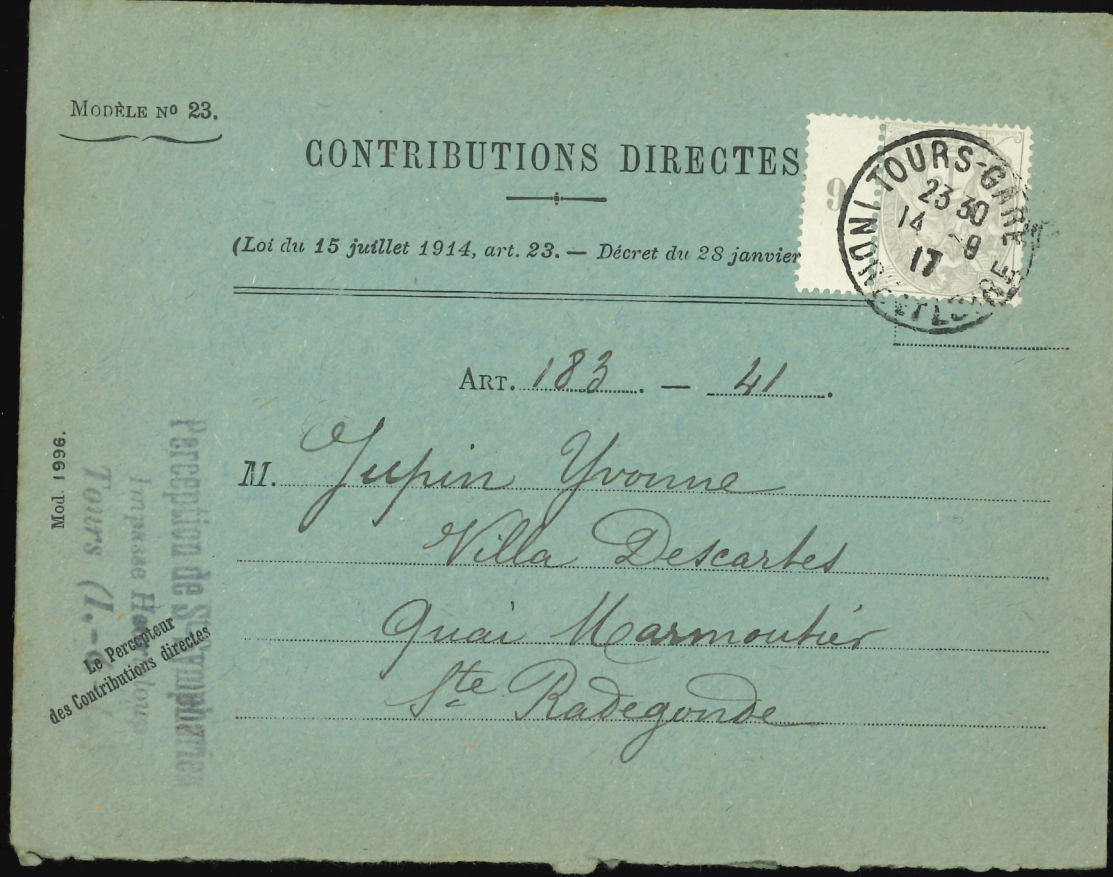 MODÈLE Nº 23.
CONTRIBUTIONS DIRECTES
(Loi du 15 juillet 1914, art. 23. — Décret du 28 janvier
9
TOURS-GARE
23 30
14 - 9
17
INDRE-ET-LOIRE
ART. 183. — 41.
M. Jupin Yvonne
Villa Descartes
Quai Marmoutier
Ste Radegonde
Mod. 1996.
Perception de St Symphorien
Impasse
Tours (I.-
Le Percepteur
des Contributions directes